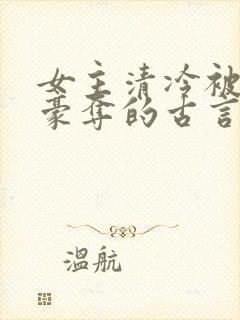 女主清冷被
豪夺的古言
温航